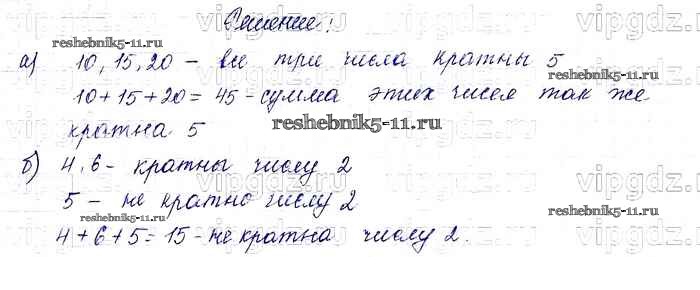 Решение!
reshebnik5-11.ru
а) 10, 15, 20 - все три числа кратны 5
10+15+20=45-сумма этих чисел так же
кратна 5
reshebnik5-11.ru
б) 4, 6- кратны числу 2
5 - не кратно числу 2
reshebnik5-11.ru
reshebnik5-11.ru
4+6+5=15-не кратна числу 2.
vipgdz.ru
vipgdz.ru
vipgdz.ru
vipgdz.ru